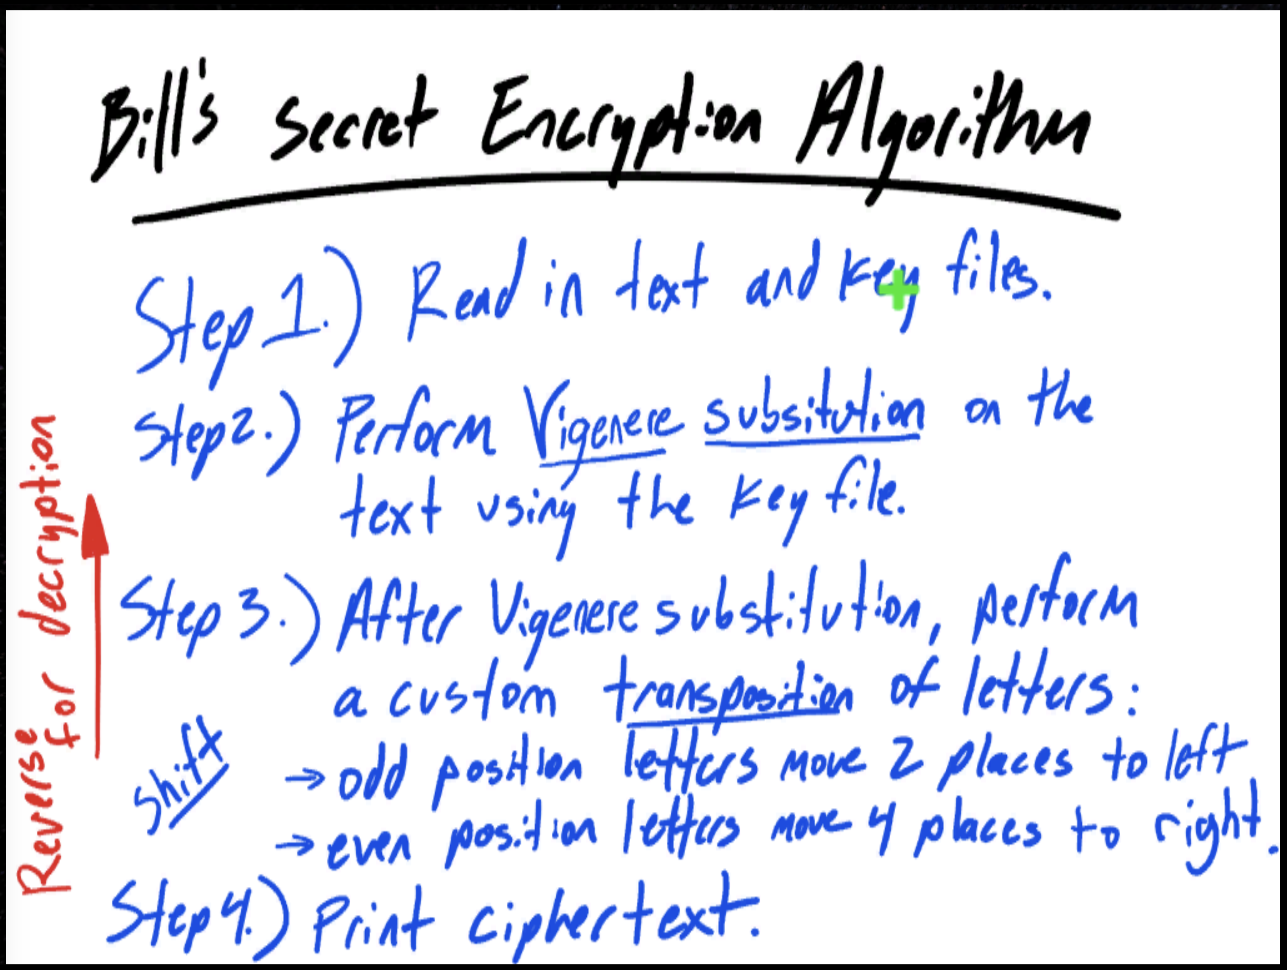 Bill's Secret Encryption Algorithm
Step 1.) Read in text and key files.
Step 2.) Perform Vigenere subsitution on the
text using the key file.
Step 3.) After Vigenere substitution, perform
a custom transposition of letters:
shift
→ odd position letters move 2 places to left
→ even position letters move 4 places to right.
Step 4.) Print ciphertext.
Reverse
for decryption